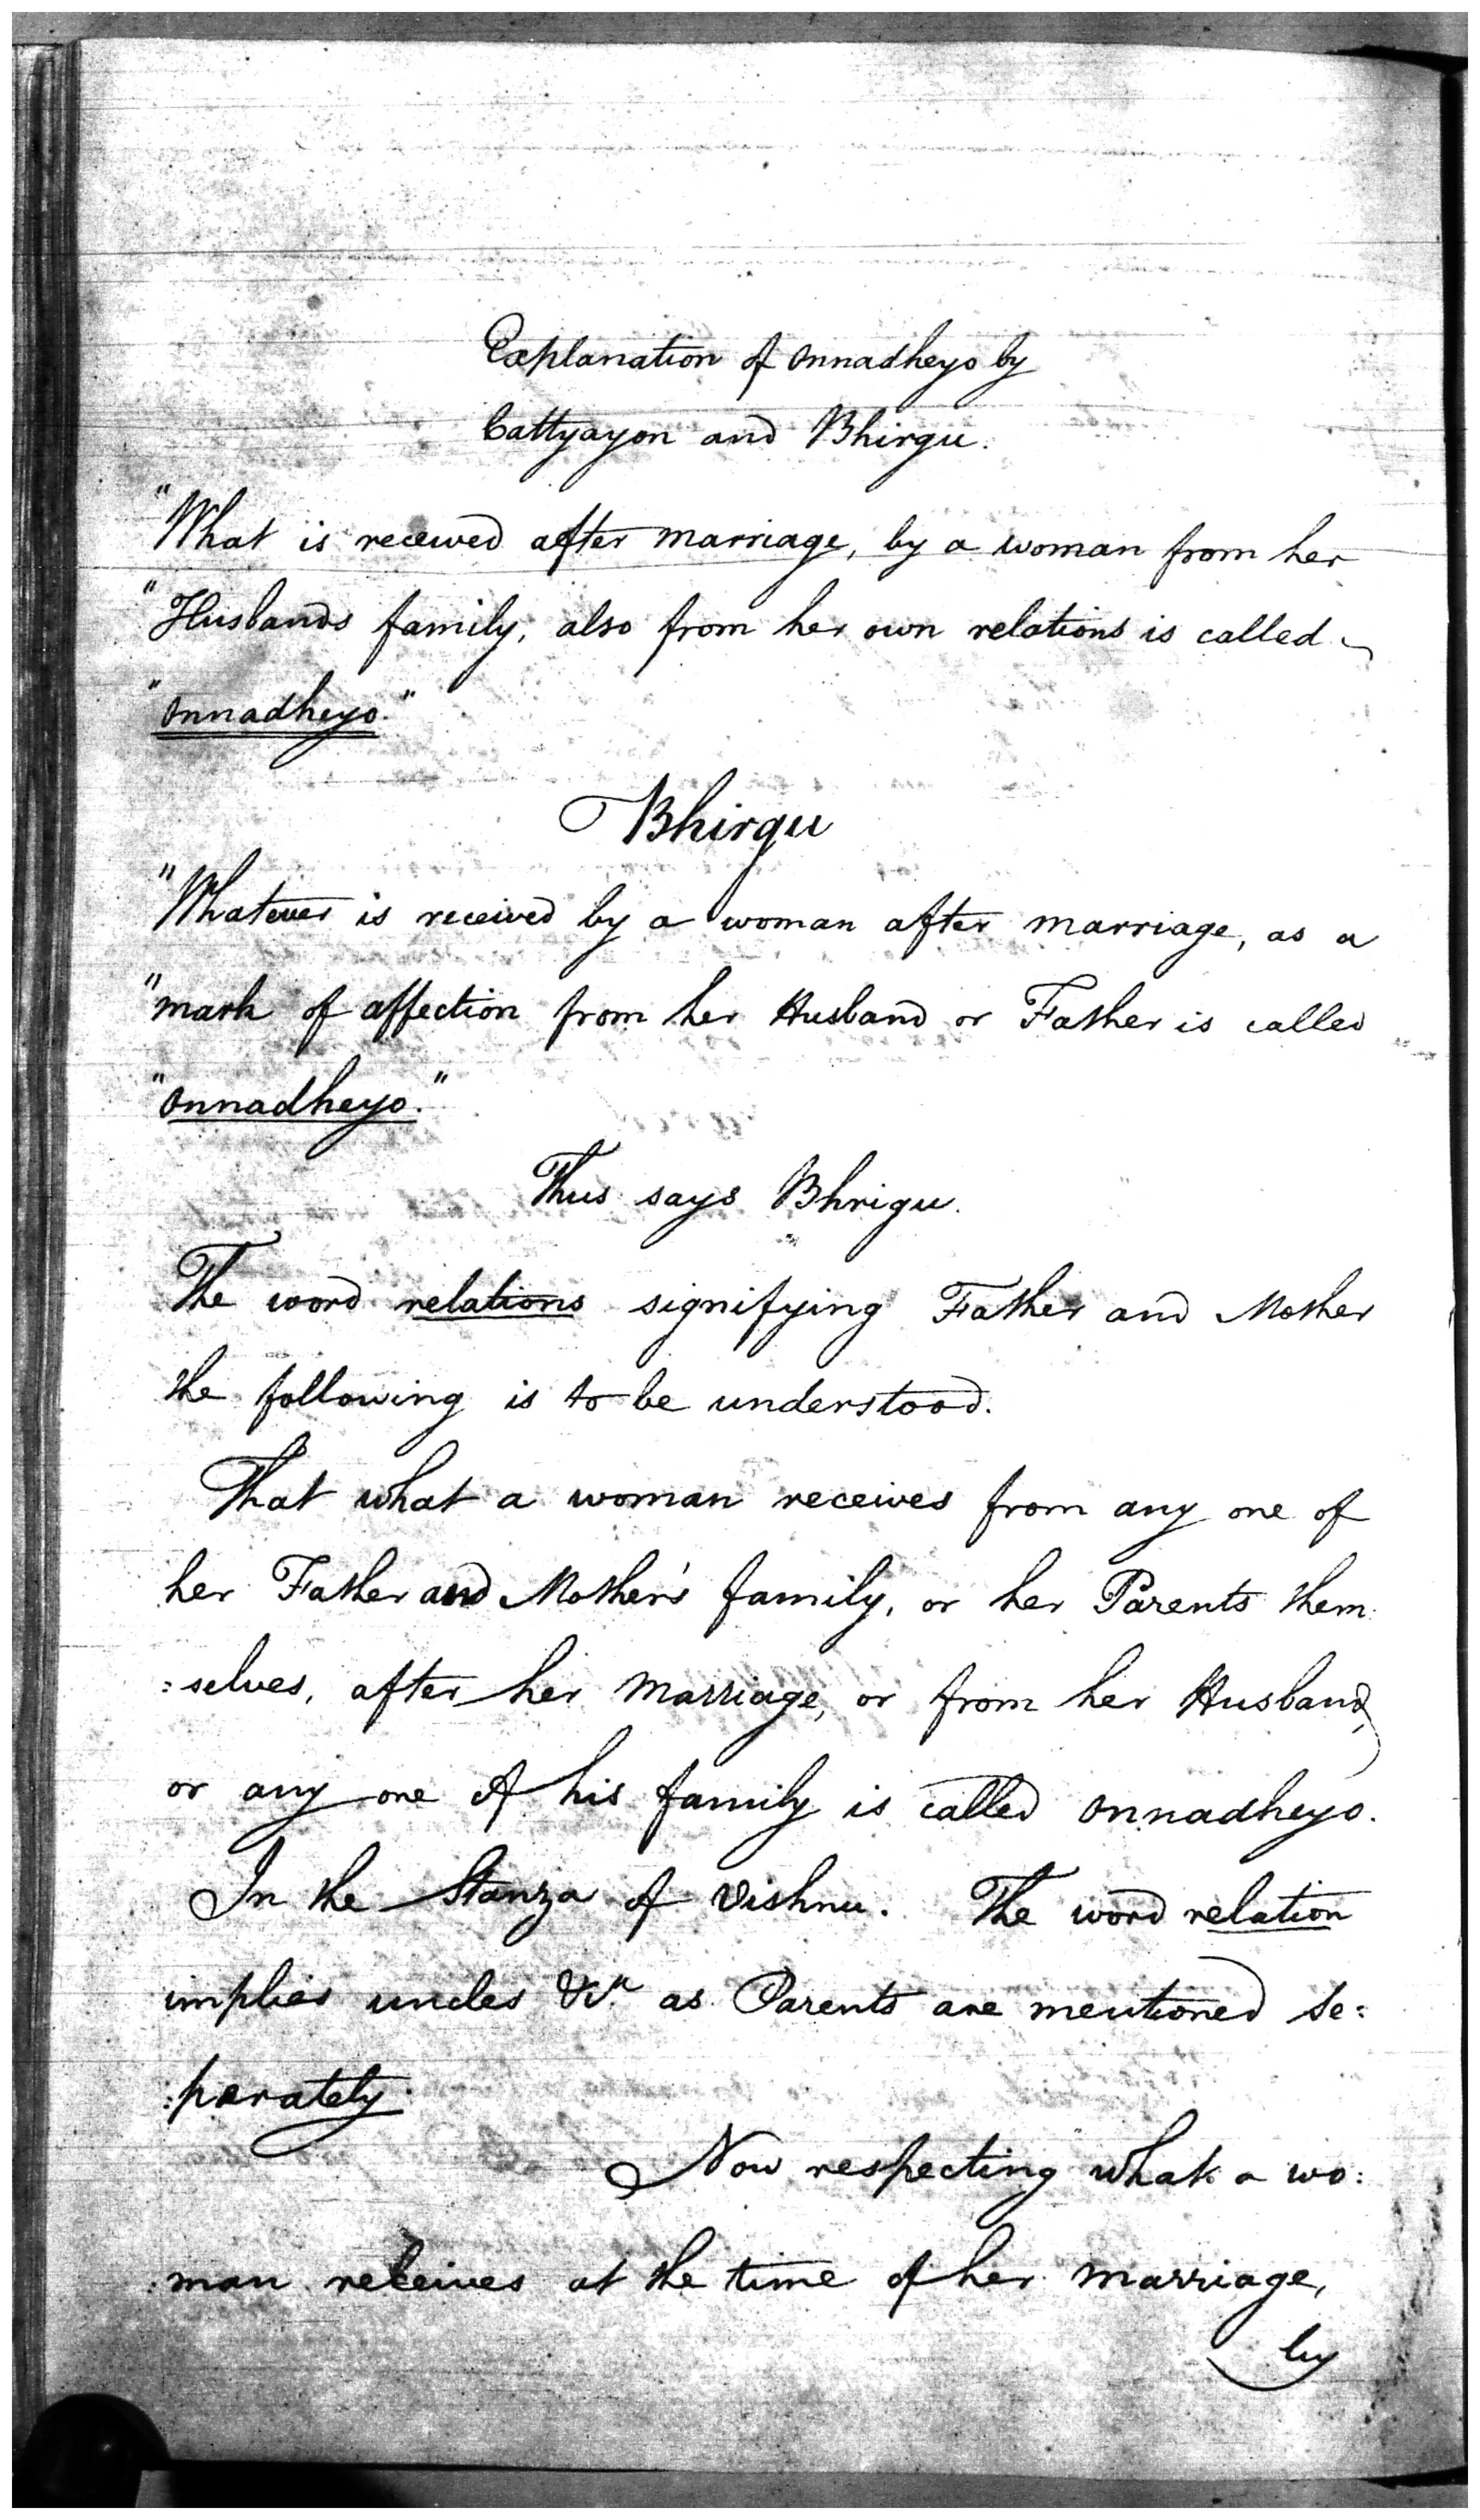 Explanation of Onnadheyo by
Cattyayon and Bhirgu.
"What is received after marriage, by a woman from her
"Husbands family, also from her own relations is called
"Onnadheyo."
Bhirgu
"Whatever is received by a woman after marriage, as a
"mark of affection from her Husband or Father is called
"Onnadheyo."
Thus says Bhrigu.
The word relations signifying Father and Mother
the following is to be understood.
That what a woman receives from any one of
her Father and Mother's family, or her Parents them
:selves, after her marriage, or from her Husband,
or any one of his family is called Onnadheyo.
In the Stanza of Vishnu. The word relation
implies uncles &c.a as Parents are mentioned se:
:perately.
Now respecting what a wo:
:man receives at the time of her marriage,
by